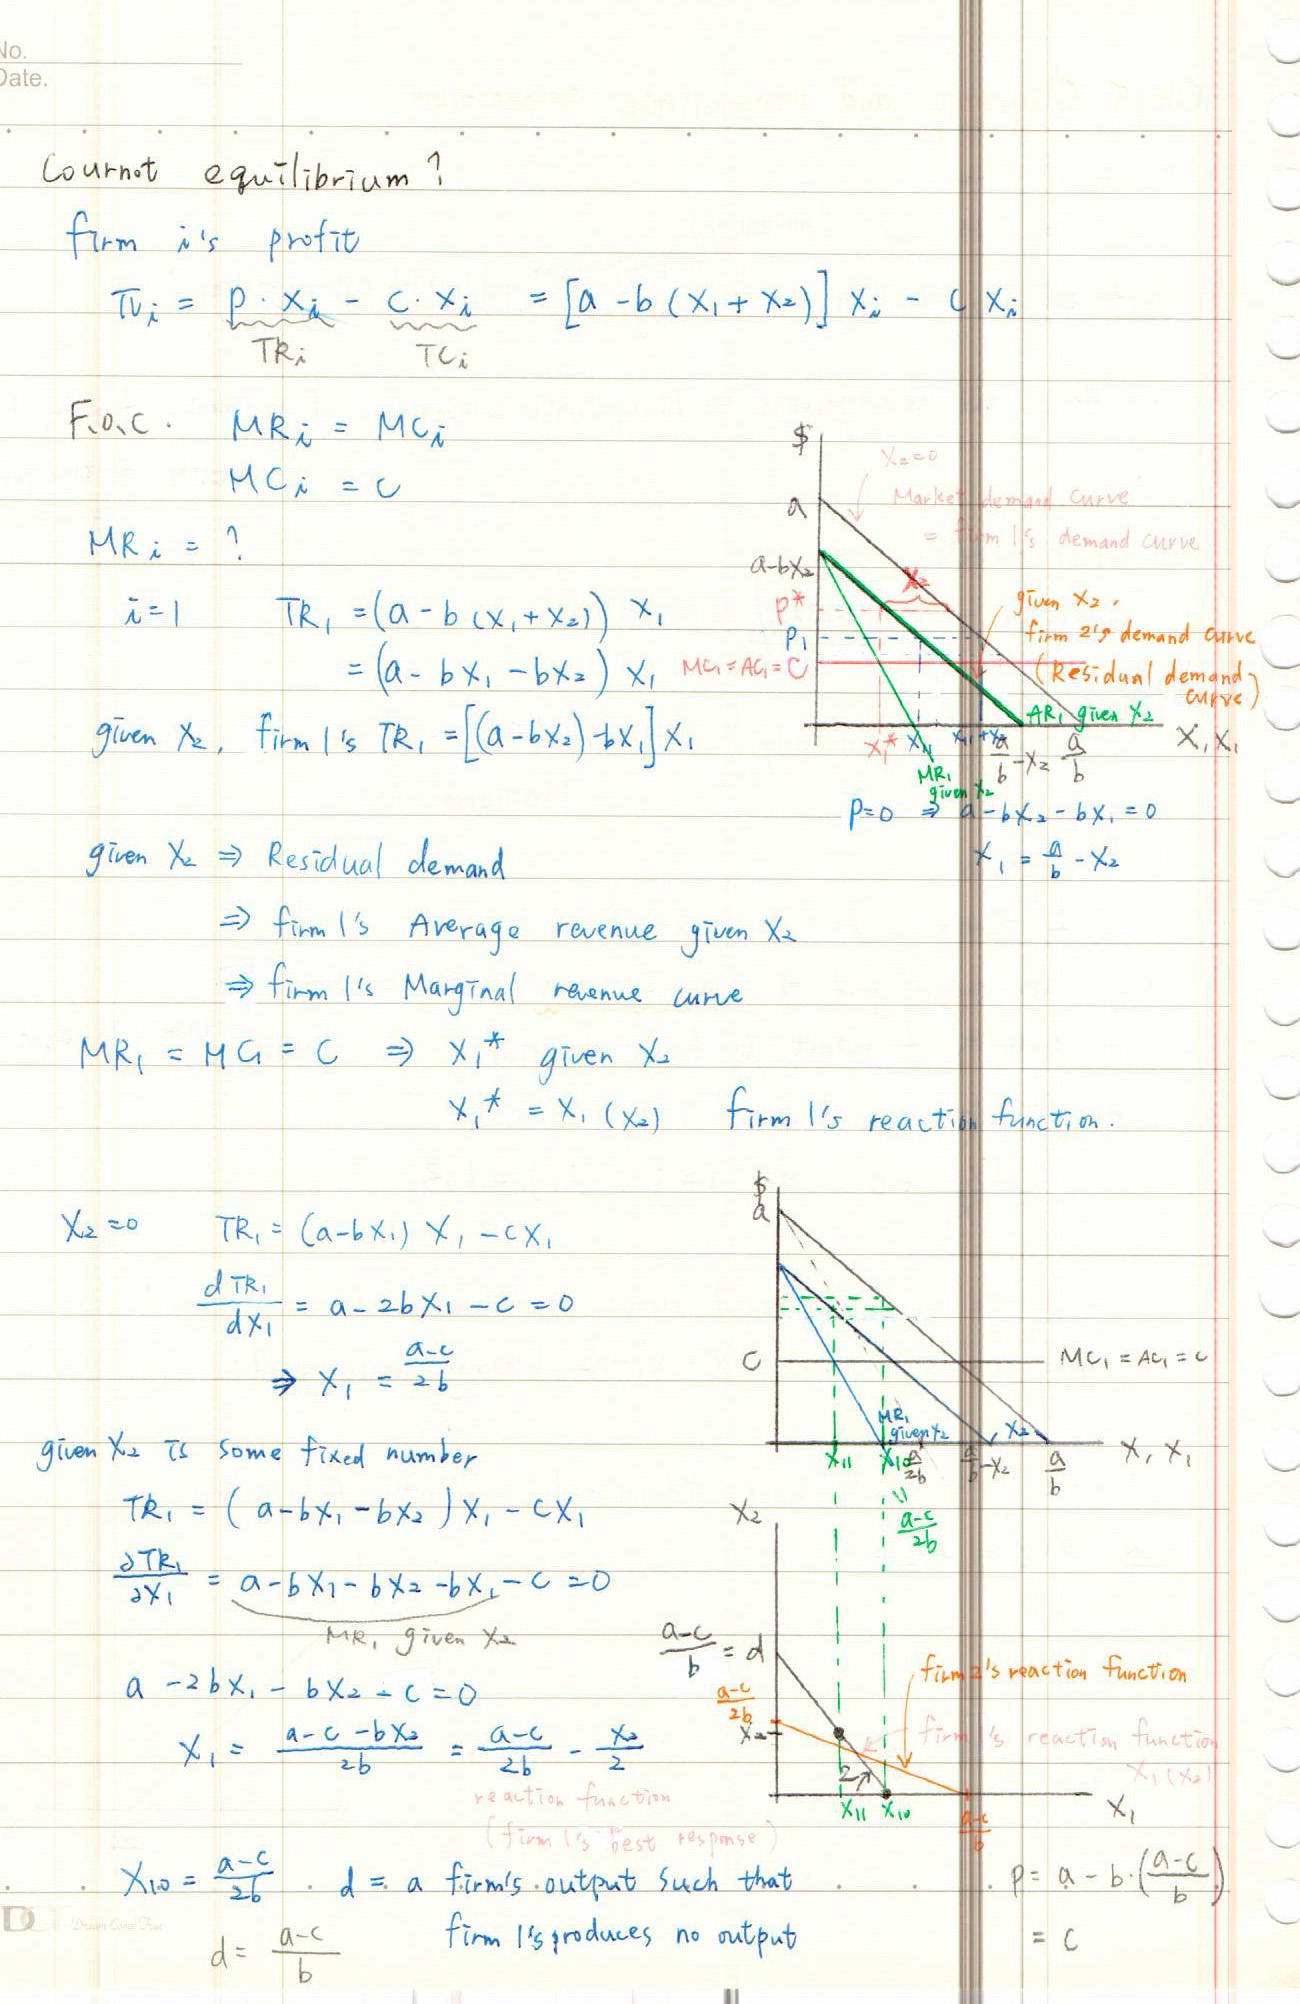 No.
Date.
Cournot equilibrium?
firm i's profit
πi = p · xi - c · xi = [a - b (x1 + x2)] xi - c xi
TRi TCi
F.O.C. MRi = MCi
MCi = c
MRi = ?
i=1 TR1 = (a - b (x1 + x2)) x1
= (a - bx1 - bx2) x1
given x2, firm 1's TR1 = [(a-bx2) - bx1] x1
$
x2=0
a
Market demand curve
= firm 1's demand curve
a-bx2
x2
p*
given x2,
P1
firm 2's demand curve
MC1 = AC1 = C
(Residual demand curve)
AR1 given x2
x, x1
x1* x11 x11+x2 a/b - x2 a/b
MR1 given x2
P=0 ⇒ a - bx2 - bx1 = 0
x1 = a/b - x2
given x2 ⇒ Residual demand
⇒ firm 1's Average revenue given x2
⇒ firm 1's Marginal revenue curve
MR1 = MC1 = C ⇒ x1* given x2
x1* = x1 (x2) firm 1's reaction function.
x2=0 TR1 = (a-bx1) x1 - cx1
dTR1/dx1 = a - 2bx1 - c = 0
⇒ x1 = a-c/2b
given x2 is some fixed number
TR1 = (a-bx1 - bx2) x1 - cx1
∂TR1/∂x1 = a-bx1 - bx2 - bx1 - c = 0
MR1 given x2
a - 2bx1 - bx2 - c = 0
x1 = a-c-bx2/2b = a-c/2b - x2/2
reaction function
(firm 1's best response)
$
a
C
MC1 = AC1 = c
MR1 given x2
x2
x11 x10 a/2b a/b - x2 a/b x, x1
= a-c/2b
x2
a-c/b = d
a-c/2b
x2
firm 2's reaction function
firm 1's reaction function
x1 (x2)
2
x11 x10 a-c/b x1
x10 = a-c/2b . d = a firm's output such that
firm 1's produces no output
d = a-c/b
P = a - b · (a-c/b)
= c
Dream Come True